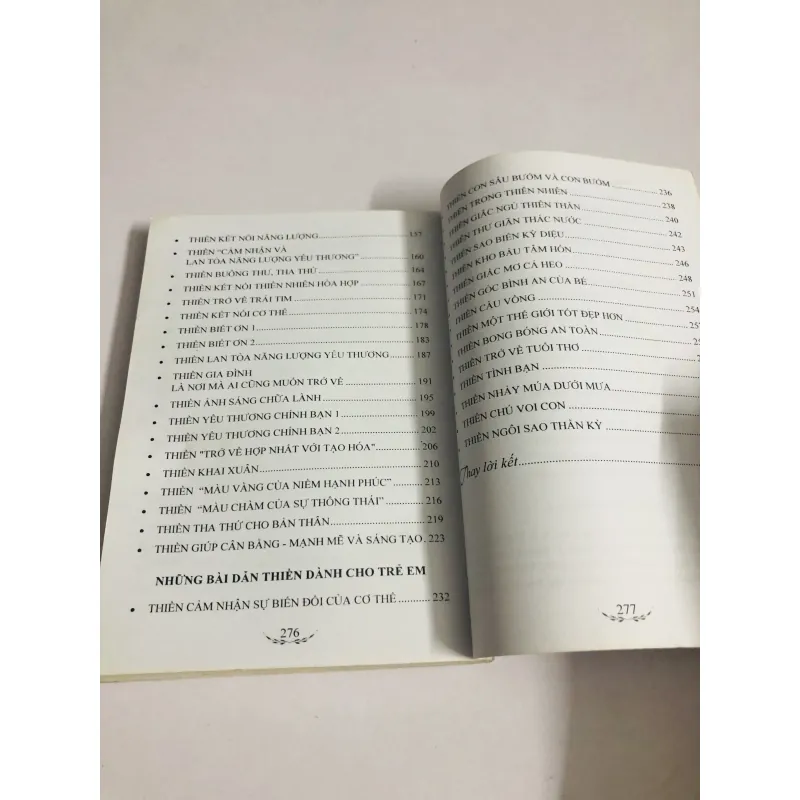 • THIỀN KẾT NỐI NĂNG LƯỢNG 157
• THIỀN “CẢM NHẬN VÀ
LAN TỎA NĂNG LƯỢNG YÊU THƯƠNG” 160
• THIỀN BUÔNG THƯ, THA THỨ 164
• THIỀN KẾT NỐI THIÊN NHIÊN HÒA HỢP 167
• THIỀN TRỞ VỀ TRÁI TIM 171
• THIỀN KẾT NỐI CƠ THỂ 174
• THIỀN BIẾT ƠN 1 178
• THIỀN BIẾT ƠN 2 183
• THIỀN LAN TỎA NĂNG LƯỢNG YÊU THƯƠNG 187
• THIỀN GIA ĐÌNH
LÀ NƠI MÀ AI CŨNG MUỐN TRỞ VỀ 191
• THIỀN ÁNH SÁNG CHỮA LÀNH 195
• THIỀN YÊU THƯƠNG CHÍNH BẠN 1 199
• THIỀN YÊU THƯƠNG CHÍNH BẠN 2 202
• THIỀN "TRỞ VỀ HỢP NHẤT VỚI TẠO HÓA" 206
• THIỀN KHAI XUÂN 210
• THIỀN “MÀU VÀNG CỦA NIỀM HẠNH PHÚC” 213
• THIỀN “MÀU CHÀM CỦA SỰ THÔNG THÁI” 216
• THIỀN THA THỨ CHO BẢN THÂN 219
• THIỀN GIÚP CÂN BẰNG - MẠNH MẼ VÀ SÁNG TẠO 223
NHỮNG BÀI DẪN THIỀN DÀNH CHO TRẺ EM
• THIỀN CẢM NHẬN SỰ BIẾN ĐỔI CỦA CƠ THỂ 232
276
THIỀN CON SÂU BƯỚM VÀ CON BƯỚM 236
THIỀN TRONG THIÊN NHIÊN 238
THIỀN GIẤC NGỦ THIÊN THẦN 240
THIỀN THƯ GIÃN THÁC NƯỚC 242
THIỀN SAO BIỂN KỲ DIỆU 243
THIỀN KHO BÁU TÂM HỒN 246
THIỀN GIẤC MƠ CÁ HEO 248
THIỀN GÓC BÌNH AN CỦA BÉ 251
THIỀN CẦU VỒNG 254
THIỀN MỘT THẾ GIỚI TỐT ĐẸP HƠN
THIỀN BONG BÓNG AN TOÀN
THIỀN TRỞ VỀ TUỔI THƠ
THIỀN TÌNH BẠN
THIỀN NHẢY MÚA DƯỚI MƯA
THIỀN CHÚ VOI CON
THIỀN NGÔI SAO THẦN KỲ
Thay lời kết
277